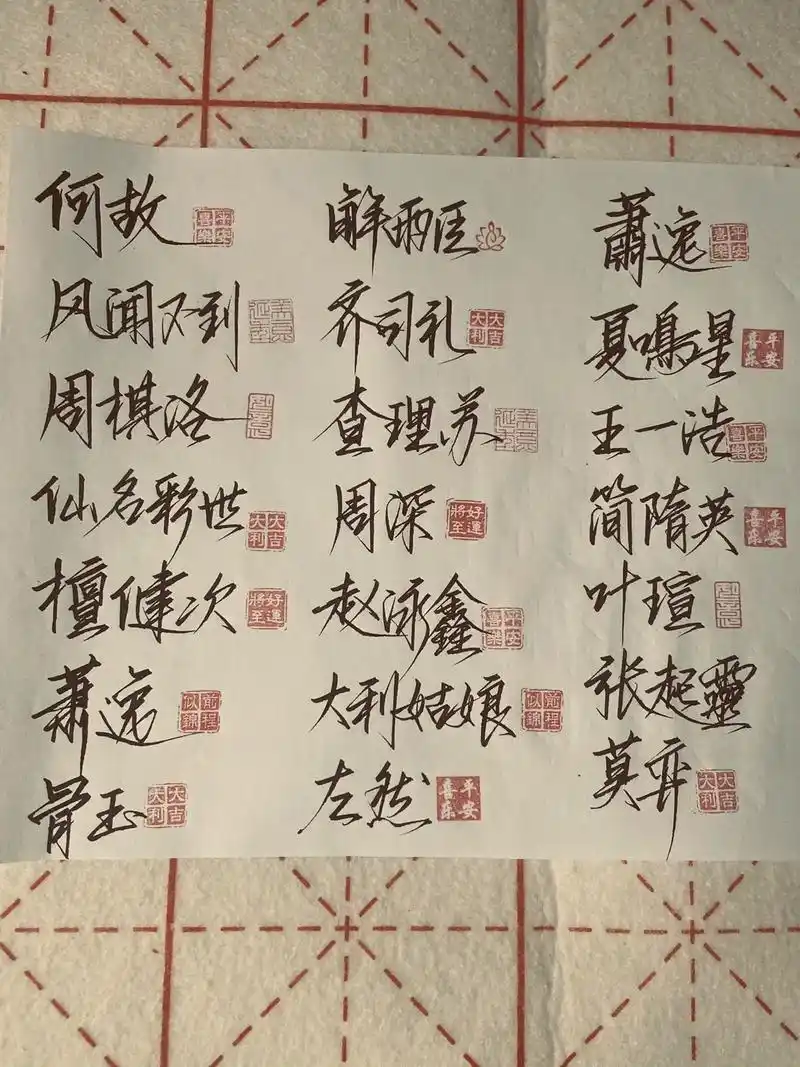 何故 喜樂平安
风闻不到
周棋洛
仙名彩世 大吉大利
檀健次 好運將至
萧逸 前程似錦
骨玉 大吉大利
解雨臣
齐司礼 大吉大利
查理苏
周深 好運將至
赵泳鑫 平安喜樂
大利姑娘 前程似錦
左然 平安喜乐
蕭逸 平安喜樂
夏鳴星 平安喜乐
王一浩 平安喜樂
简隋英 平安喜乐
叶瑄
张起靈
莫弈 大吉大利